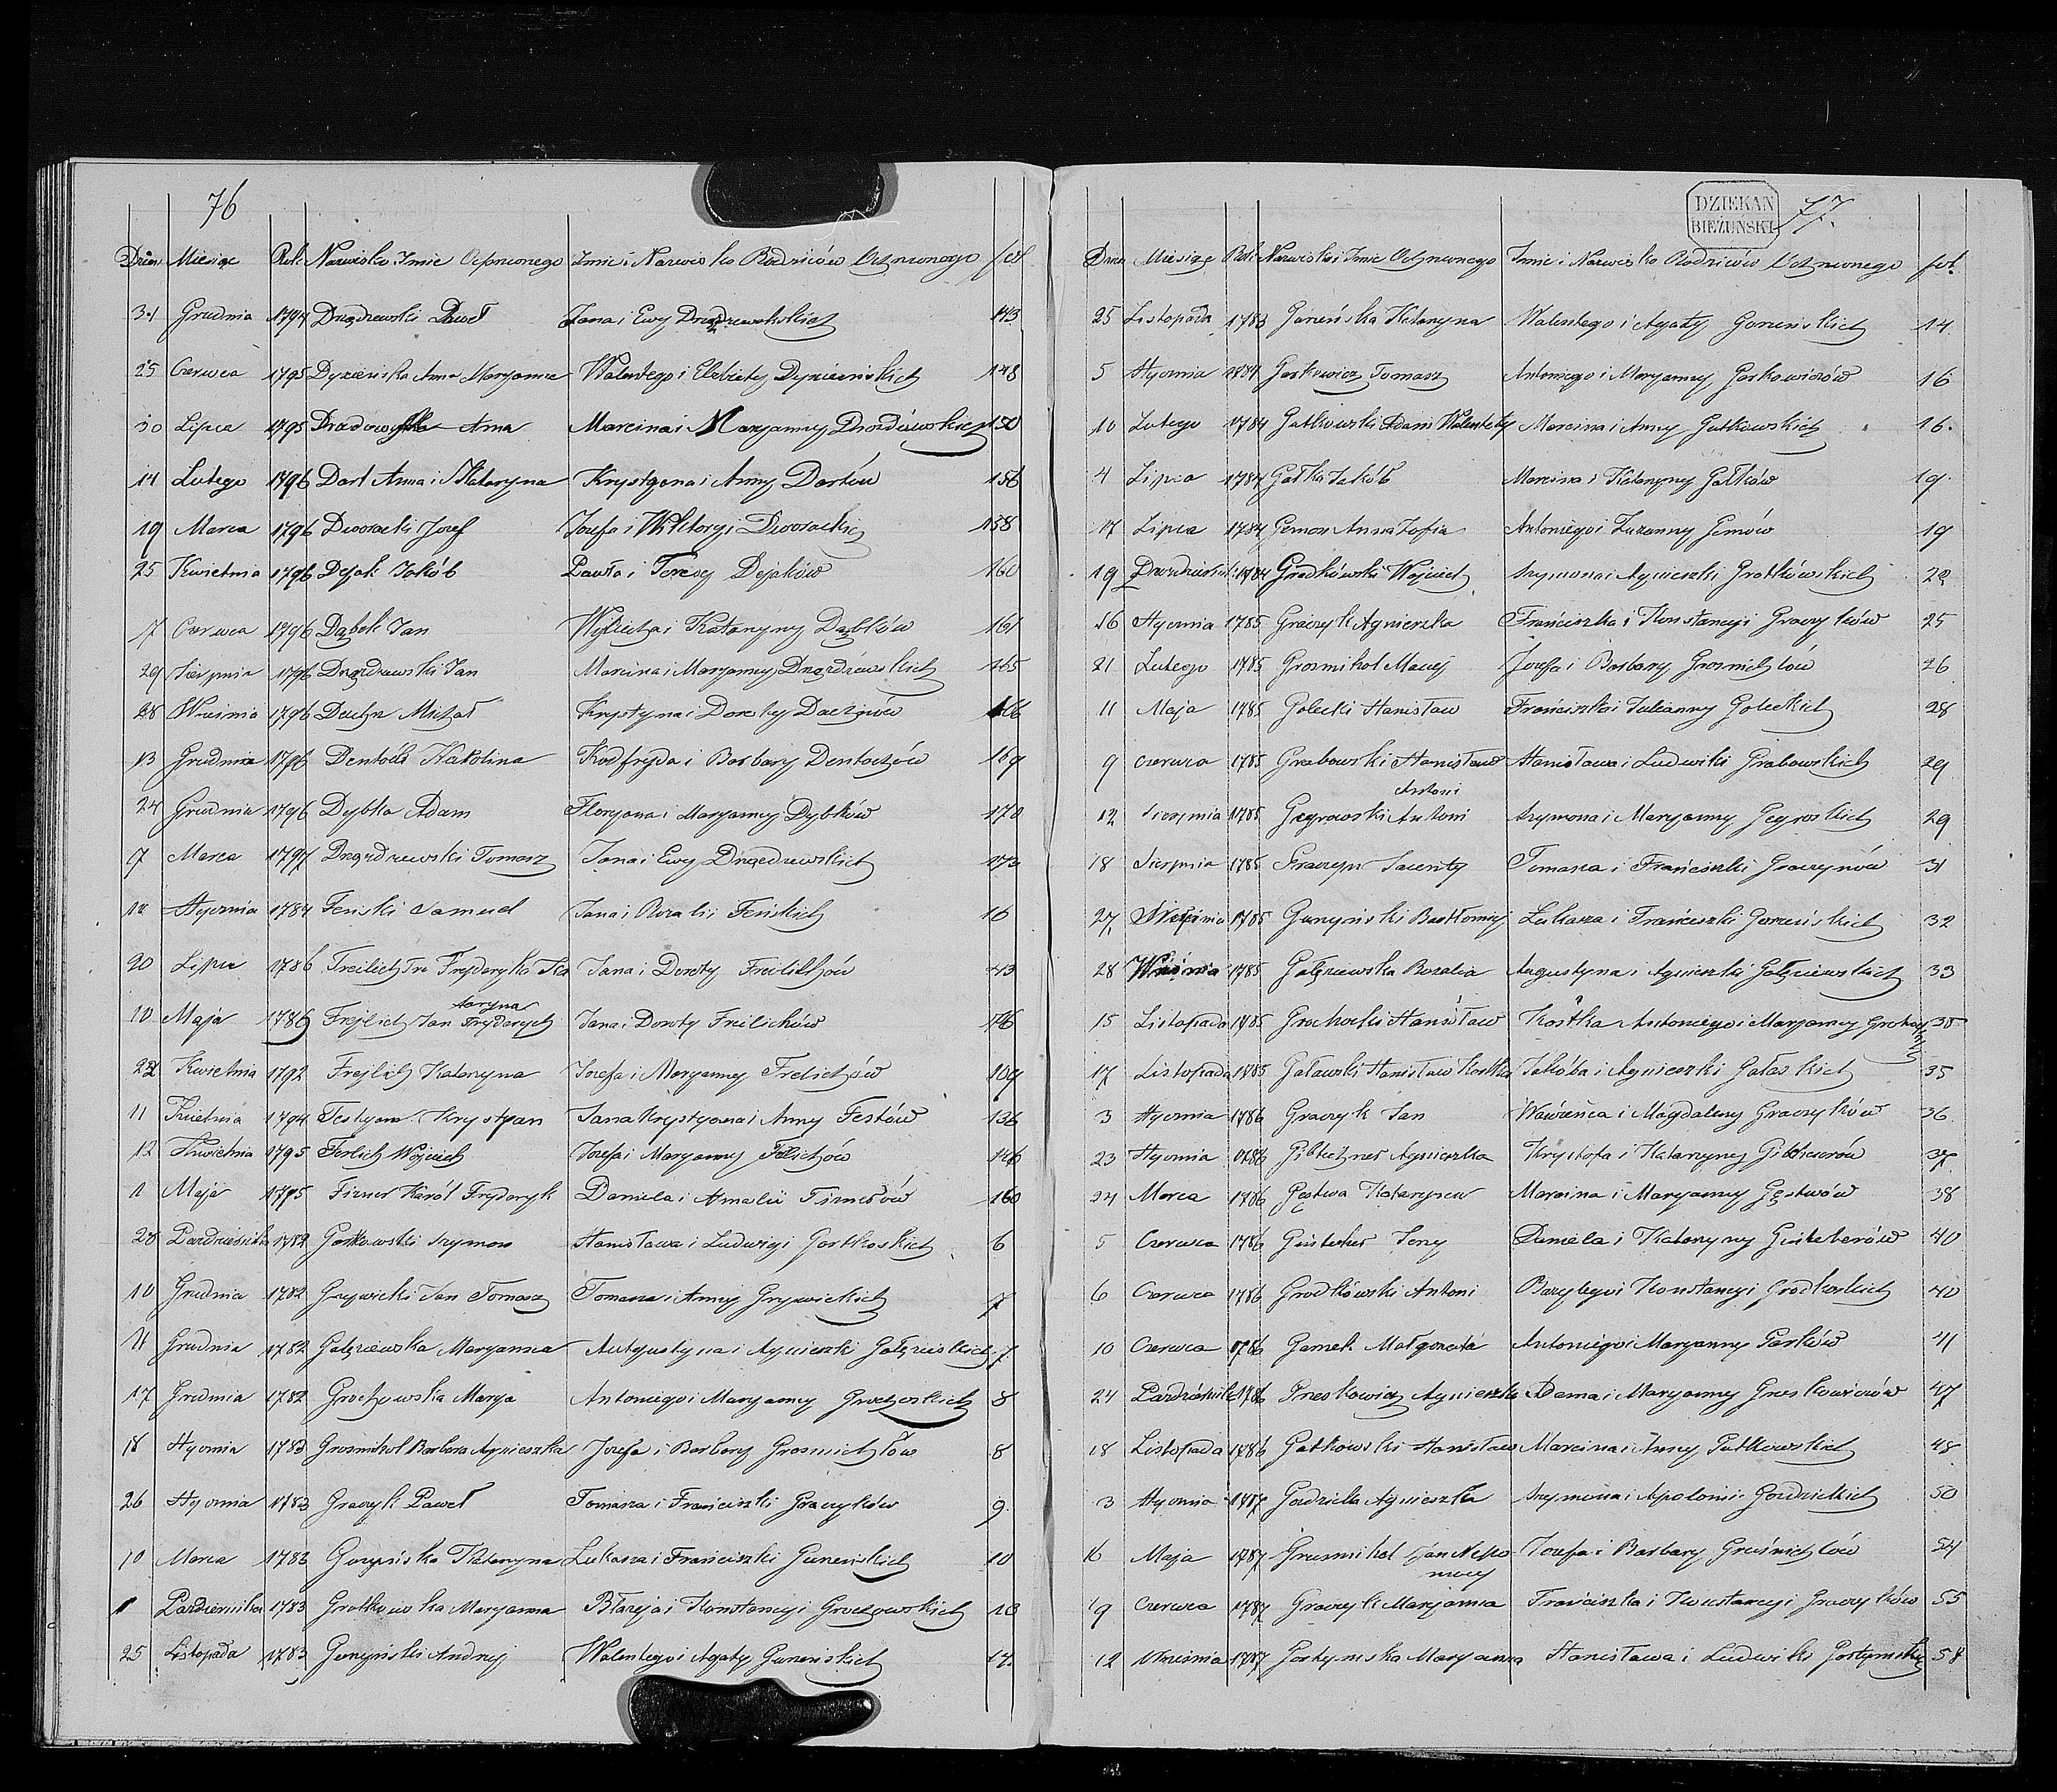 76
Dzień Miesiąc Rok Nazwisko i Imie Ochrzconego Imie i Nazwisko Rodziców Ochrzconego fol
31 Grudnia 1794 Drązdzewski Paweł Jana i Ewy Drązdzewskskich 143
25 Czerwca 1795 Dyzieńska Anna Maryanna Walentego i Elżbiety Dyzieińskich 148
30 Lipca 1795 Anna Marcina i Maryanny Drozdzéwskich 150
14 Lutego 1796 Dort Anna i Katarzyna Krystyana i Anny Dortów 156
19 Marca 1796 Dworacki Jozef Jozefa i Wiktoryi Dworackich 158
25 Kwietnia 1796 Dejak Jakób Pawła i Teresy Dejaków 160
7 Czerwca 1796 Dąbek Jan Wojciecha i Katarzyny Dąbków 161
29 Sierpnia 1796 Drązdzewski Jan Marcina i Maryanny Drązdzéwskich 165
28 Wrzesnia 1796 Michał Krystyna i Doroty 166
13 Grudnia 1796 Karolina Kodfryda i Barbary Dentochów 169
24 Grudnia 1796 Dybka Adam Floryana i Maryanny Dybków 170
7 Marca 1797 Drązdzewski Tomasz Jana i Ewy Drązdzewskich 173
Stycznia 1784 Feński Samuel Jana i Rozalii Feńskich 16
20 Lipca 1786 Freilich Fryderyka Jana i Doroty Freilichów 43
taryna
10 Maja 1789 Frejlich Jan Fryderych Jana i Doroty Freilichów 76
22 Kwietnia 1792 Frejlich Katarzyna Jozefa i Maryanny Frelichów 109
11 Kwietnia 1794 Krystyan Jana Krystyana i Anny Festów 136
12 Kwietnia 1795 Ferlich Wojciech Jozefa i Maryanny Felichów 146
1 Maja 1795 Firner Karól Fryderyk Daniela i Amalii Firnerów 160
28 Pazdziernika 1782 Gostkowski Szymon Stanisława i Ludwigi Gostkoskich 6
10 Grudnia 1782 Grzywicki Jan Tomasz Tomasza i Anny Grzywickich 7
11 Grudnia 1782 Gałęziewska Maryanna Autgustyna i Agnieszki Gałęziewskich 7
17 Grudnia 1782 Grochowska Marya Antoniego i Maryanny Grochoskich 8
18 Stycznia 1783 Grosmikol Barbara Agnieszka Jozefa i Barbary Grosmichlów 8
26 Stycznia 1783 Graczyk Paweł Tomasza i Franciszki Graczyków 9
10 Marca 1783 Katarzyna Łukasza i Franciszki Guzeńskich 10
Pazdziernika 1783 Maryanna Błazeja i Konstancyi Grochowskich 13
25 Listopada 1783 Guzyński Andrzej Walentego i Agaty Guzeńskich 14.
DZIEKAN
BIEŻUŃSKI
77.
Dzień Miesiąc Rok Nazwisko i Imie Ochrzconego Imie i Nazwisko Rodziców Ochrzconego fol.
25 Listopada 1783 Guzeńska Katarzyna Walentego i Agaty Guzeńskich 14
5 Stycznia 1784 Gaskowicz Tomasz Antoniego i Maryanny Gaskowiczów 16
10 Lutego 1784 Gutkowski Adam Walenty Marcina i Anny Gutkowskich 16.
4 Lipca 1784 Gałka Jakób Marcina i Katarzyny Gałków 19.
17 Lipca 1784 Anna Zofia Antoniego i Zuzanny Gemów 19
19 1784 Grodkówski Wojciech Szymona i Agnieszki Grotkówskich 22
16 Stycznia 1785 Graczyk Agnieszka Franciszka i Konstancyi Graczyków 25
21 Lutego 1785 Grosmikol Maciej Jozefa i Barbary Grosmichlów 26
11 Maja 1785 Golecki Stanisław Franciszka i Julianny Goleckich 28
9 czerwca 1785 Grabowski Stanisław Stanisława i Ludwiki Grabowskich 29
Antoni
12 Sierpnia 1785 Antoni Szymona i Maryanny 29
18 Sierpnia 1785 Tomasza i Franciszki Graczyków 31
27 Sierpnia 1785 Guzyński Bartłomiej Łukasza i Franciszki Guzeńskich 32
28 Wrzesnia 1785 Gałęziewska Rozalia Augustyna i Agnieszki Gałęziewskich 33
15 Listopada 1785 Grochocki Stanisław Kostka Antoniego i Maryanny 35
17 Listopada 1785 Gaławski Stanisław Kostka Jakóba i Agnieszki Gałaskich 35
3 Stycznia 1786 Graczyk Jan Wawrzeńca i Magdaleny Graczyków 36
23 Stycznia 1786 Agnieszka Krysztofa i Katarzyny 37
24 Marca 1786 Gęstwa Katarzyna Marcina i Maryanny Gęstwów 38
5 Czerwca 1786 Daniela i Katarzyny 40
6 Czerwca 1786 Grodkówski Antoni Bazylego i Konstancyi Grodkoskich 40
10 Czerwca 1786 Garnek Małgorzata Antoniego i Maryanny Garków 41
24 Pazdziernik 1786 Greskowicz Agnieszka Adama i Maryanny Greskowiczów 47
18 Listopada 1786 Gutkowski Stanisław Marcina i Anny Gutkowskich 48
3 Stycznia 1787 Gozdzicka Agnieszka Szymona i Apolonii Gozdzickich 50
16 Maja 1787 Grusmikol Jan Nepo- Jozefa i Barbary Gruśnichlów 54
mucy
19 Czerwca 1787 Graczyk Maryanna Franciszka i Konstancyi Graczyków 55
12 Wrzesnia 1787 Gostynska Maryanna Stanisława i Ludwiki 58